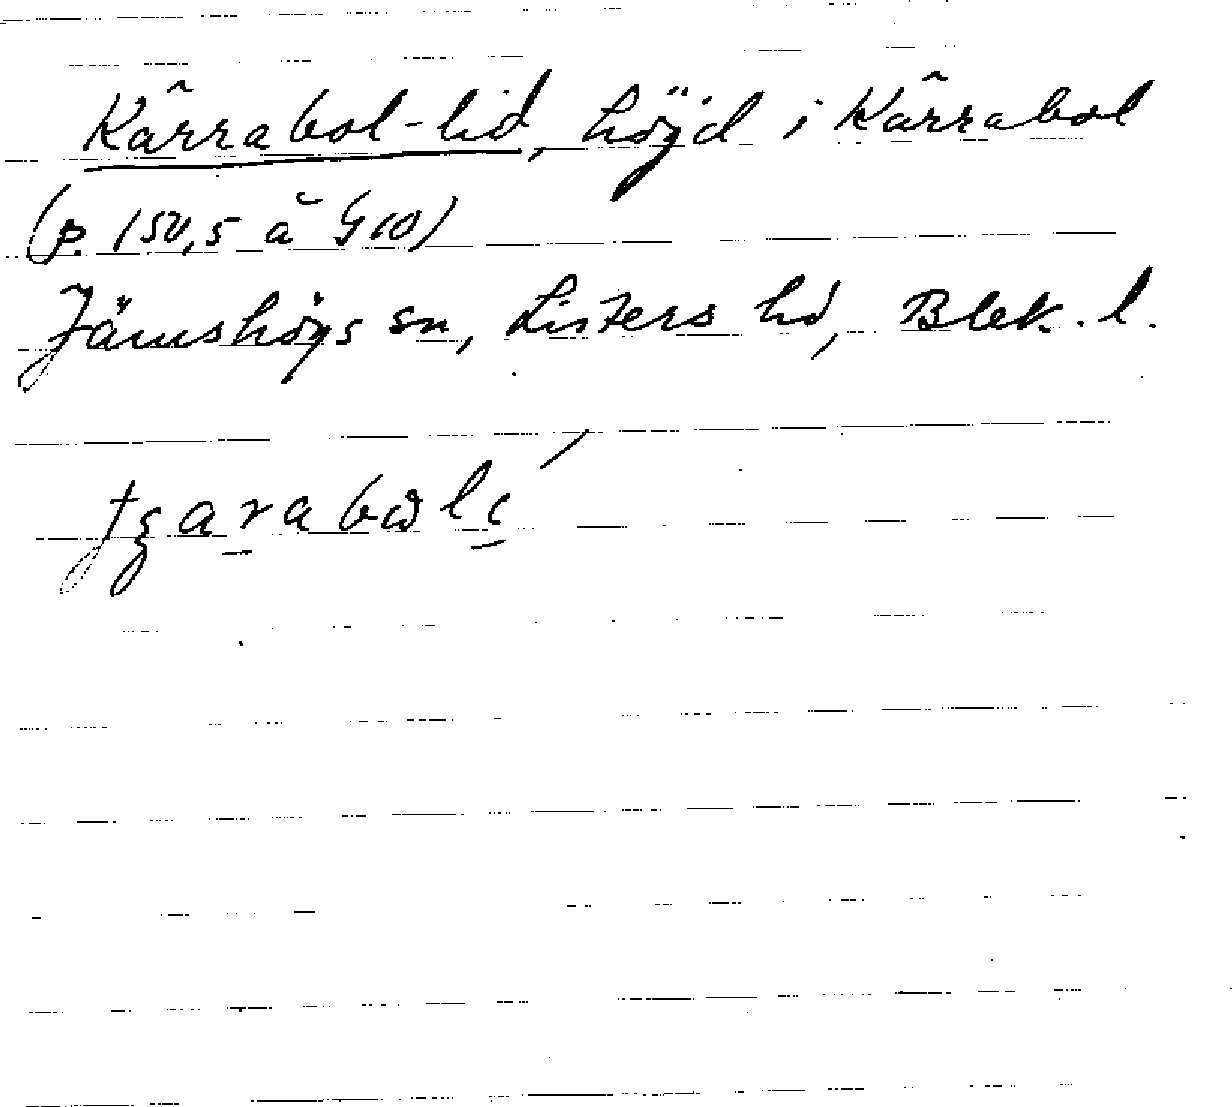 Kârrabol-lid, höjd i Kârrabol
(p. 150,5 å G10)
Jämshögs sn, Listers hd, Blek. l.